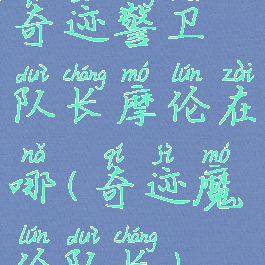 奇迹警卫
duì cháng mó lún zài
队长摩伦在
nǎ qí jì mó
哪(奇迹魔
lún duì cháng
伦队长)